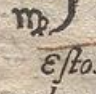 ♍
Esto.